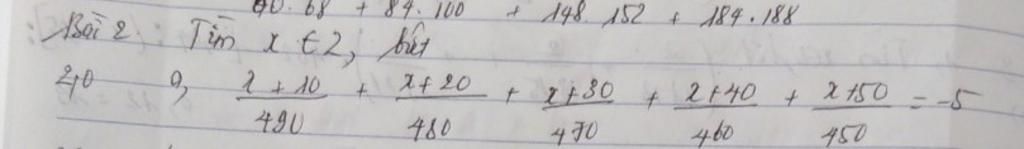 60.68 + 84.100 + 148.152 + 184.188
Bài 2. Tìm x ∈ Z, biết
2,0 a, (x+10)/490 + (x+20)/480 + (x+30)/470 + (x+40)/460 + (x+50)/450 = -5